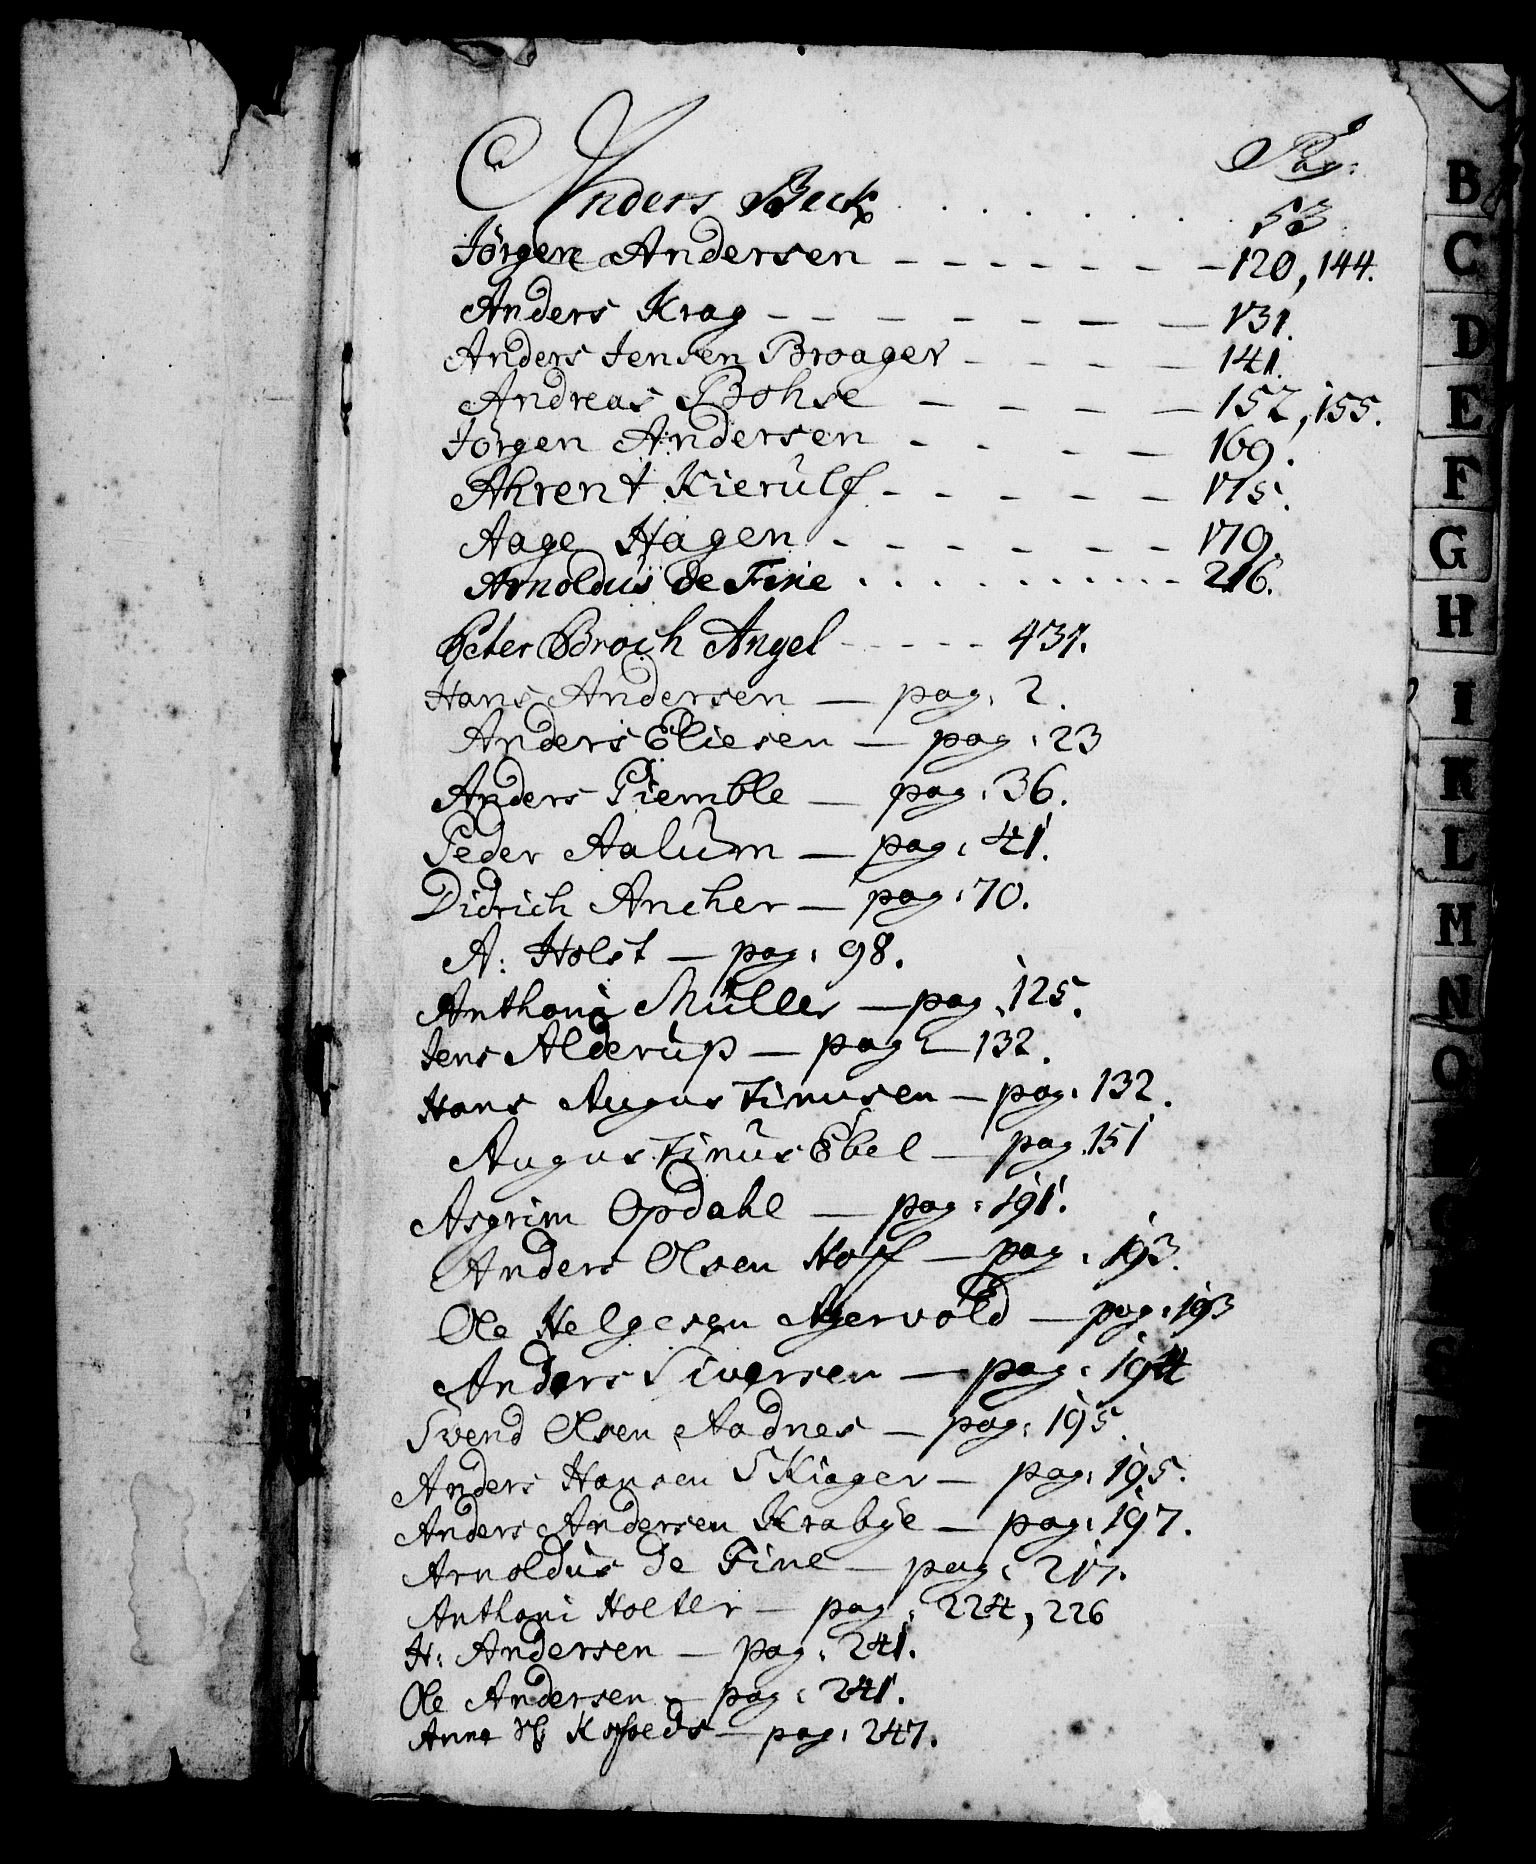 Pag:
Anders Beck . . . . . . . 53
Jørgen Andersen - - - - - - - 120, 144.
Anders Krag - - - - - - - - 131.
Anders Jensen Broager - - - - 141.
Andreas Bohse - - - - - 152, 155.
Jørgen Andersen - - - - 169.
Ahrent Kierulf - - - - - 175.
Aage Hagen - - - - - - 179.
Arnoldus de Fine . . . . . . . . . . . 216.
Peter Broch Angel - - - - - 431.
Hans Andersen — pag: 2.
Anders Eliesen — pag: 23
Anders Piemble — pag: 36.
Peder Aalum — pag: 41.
Didrich Ancher — pag: 70.
A: Holst — pag: 98.
Anthoni Müller — pag: 125.
Jens Alderup — pag — 132.
Hans Augustinusen — pag: 132.
Augustinus Ebel — pag. 151
Asgrim Opdahl — pag: 191.
Anders Olsen Hoff — pag: 193.
Ole Helgesen Agervold — pag: 193
Anders Siversen — pag: 194
Svend Olsen Aadnes — pag: 195.
Anders Hansen Skiager — pag: 195.
Anders Andersen Krabye — pag: 197.
Arnoldus de Fine — pag: 217.
Anthoni Holter — pag: 224, 226
H: Andersen — pag: 241.
Ole Andersen — pag: 241.
Anna Kofoeds — pag: 247.
B
C
D
E
F
G
H
I
K
L
M
N
O
S